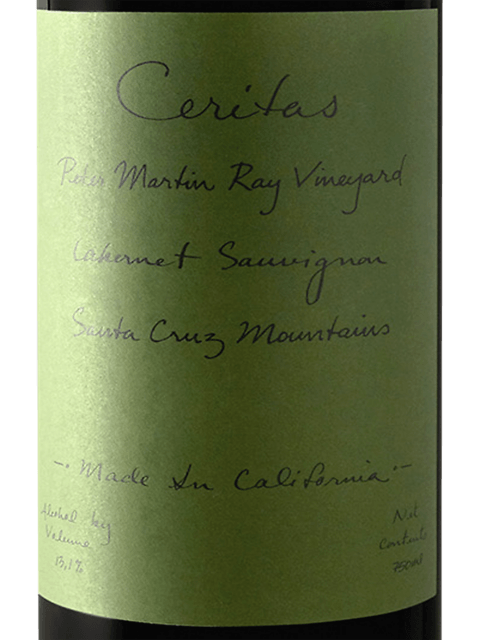 Ceritas
Peter Martin Ray Vineyard
Cabernet Sauvignon
Santa Cruz Mountains
-· Made In California ·-
Alcohol by
Volume
13.1%
Net
Contents
750ml